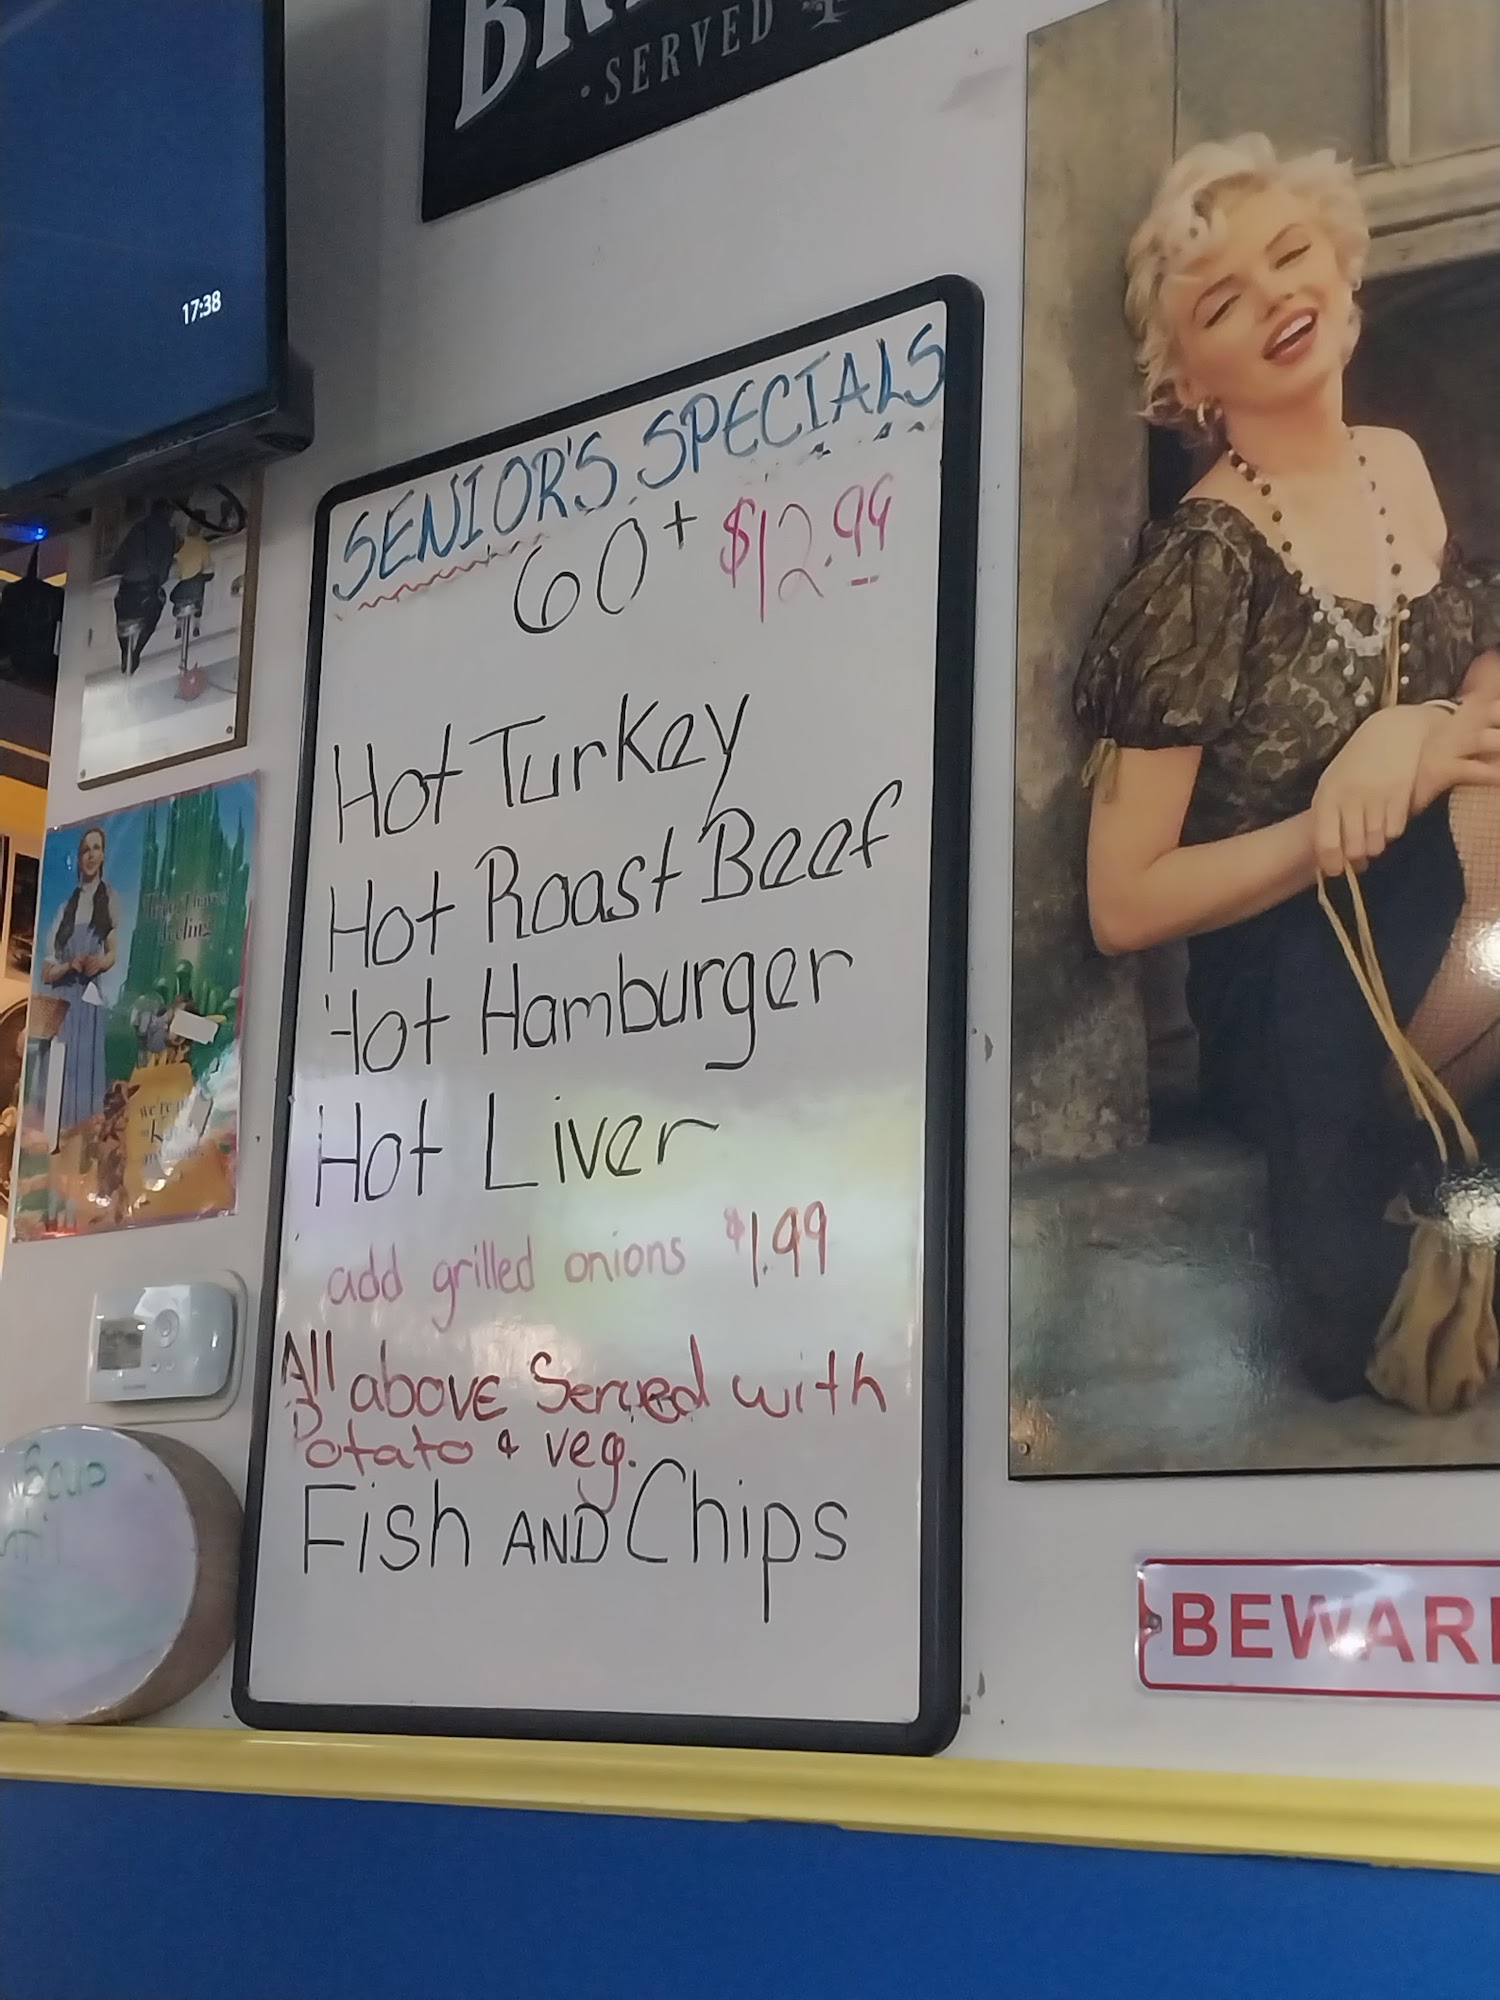 SERVED
17:38
SENIOR'S SPECIALS
60+ $12.99
Hot Turkey
Hot Roast Beef
Hot Hamburger
Hot Liver
add grilled onions $1.99
All above Served with
Potato & veg.
Fish AND Chips
feeling
we're
Soup
BEWAR